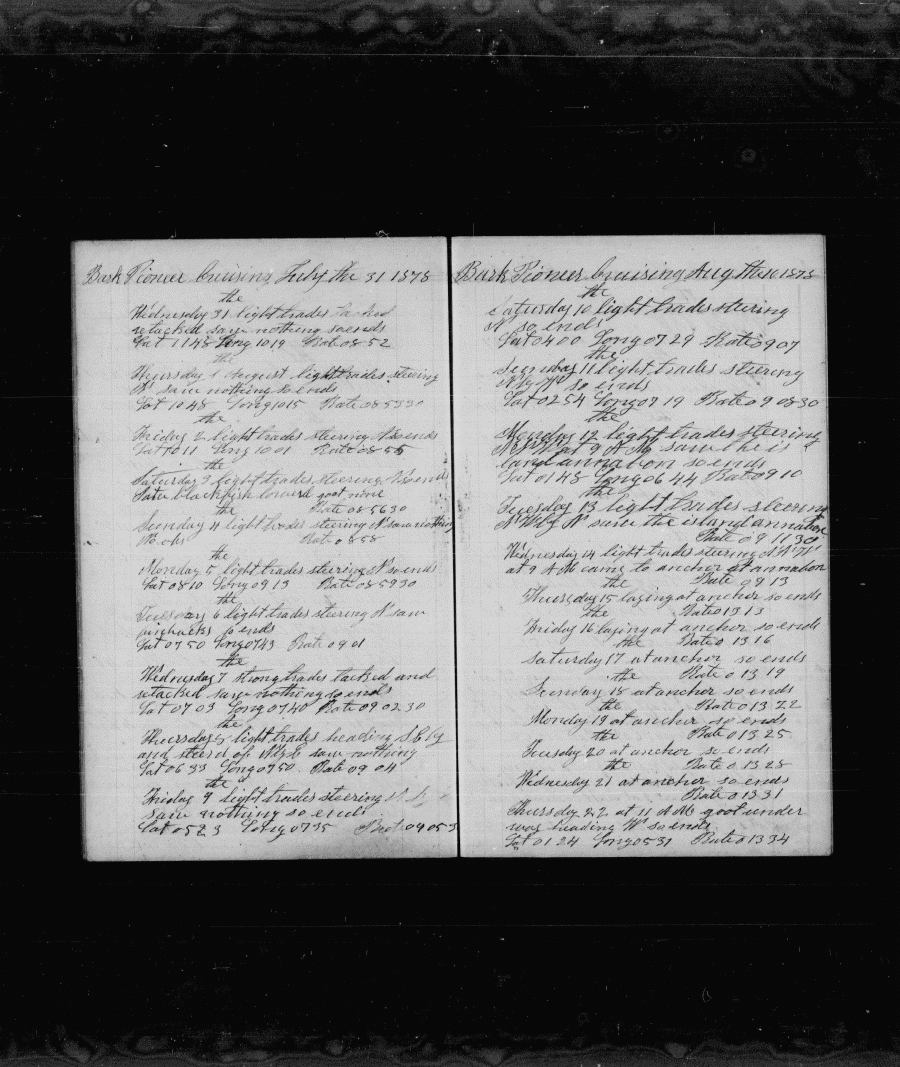 Bark Pioneer Cruising July the 31 1878
the
Wednesday 31 light trades tacked
retacked saw nothing so ends
Lat 11 48 Long 10 19 Rate 08 52
the
Thursday 1 August light trades steering
N saw nothing so ends
Lat 10 48 Long 10 15 Rate 08 5530
the
Friday 2 light trades steering N so ends
Lat 10 11 Long 10 01 Rate 08 56
the
Saturday 3 light trades steering N so ends
saw blackfish lowerd goot none
the Rate 08 5630
Seunday 4 light trades steering N saw nothing
No obs Rate 08 58
the
Monday 5 light trades steering N so ends
Lat 08 10 Long 09 13 Rate 08 5930
the
Tuesday 6 light trades steering N saw
finbacks so ends
Lat 07 50 Long 0743 Rate 09 01
the
Wednesday 7 strong trades tacked and
retacked saw nothing so ends
Lat 07 03 Long 0740 Rate 09 02 30
the
Thursday 8 light trades heading
and steerd of saw nothing
Lat 06 33 Long 0750 Rate 09 04
the
Friday 9 light trades steering
saw nothing so ends
Lat 05 23 Long 0735 Rate 09 05 3
Bark Pioneer Cruising Aug the 10 1878
the
Saturday 10 light trades steering
N so ends
Lat 04 00 Long 07 29 Rate 09 07
the
Seunday 11 light trades steering
N by W so ends
Lat 02 54 Long 07 19 Rate 09 08 30
the
Monday 12 light trades steering
at 9 AM saw the is
land annabon so ends
Lat 01 48 Long 06 44 Rate 09 10
the
Tuesday 13 light trades steering
saw the island annabon
Rate 09 11 30
Wednesday 14 light trades steering
at 9 AM came to anchor at annabon
the Rate 09 13
Thursday 15 laying at anchor so ends
the Rate 0 13 13
Friday 16 laying at anchor so ends
the Rate 0 13 16
Saturday 17 at anchor so ends
the Rate 0 13 19
Seunday 18 at anchor so ends
the Rate 0 13 22
Monday 19 at anchor so ends
the Rate 0 13 25
Tuesday 20 at anchor so ends
the Rate 0 13 28
Wednesday 21 at anchor so ends
Rate 0 13 31
Thursday 22 at 11 AM goot under
way heading W so ends
Lat 01 24 Long 0531 Rate 0 13 34